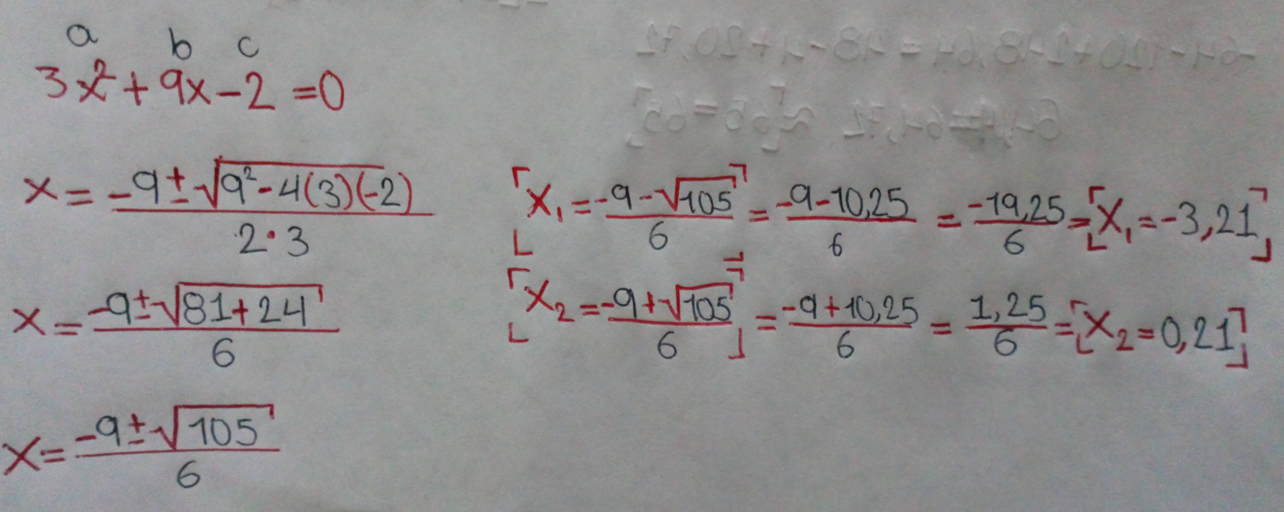 a b c
3x²+9x-2=0
x = -9±√9²-4(3)(-2) / 2·3
x = -9±√81+24 / 6
x = -9±√105 / 6
[x₁ = -9-√105 / 6] = -9-10,25 / 6 = -19,25 / 6 = [x₁ = -3,21]
[x₂ = -9+√105 / 6] = -9+10,25 / 6 = 1,25 / 6 = [x₂ = 0,21]